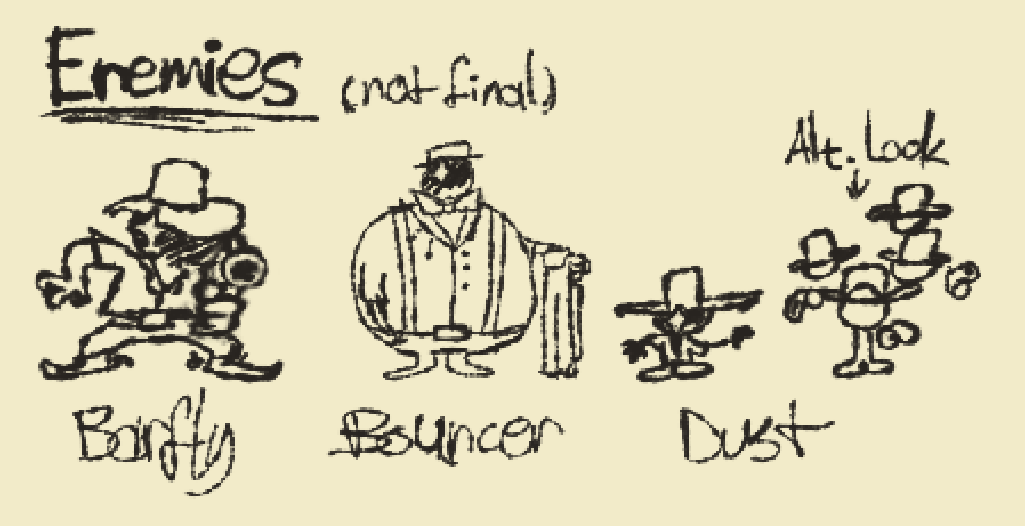 Enemies (not final)
Alt. Look
Barfly
Bouncer
Dust